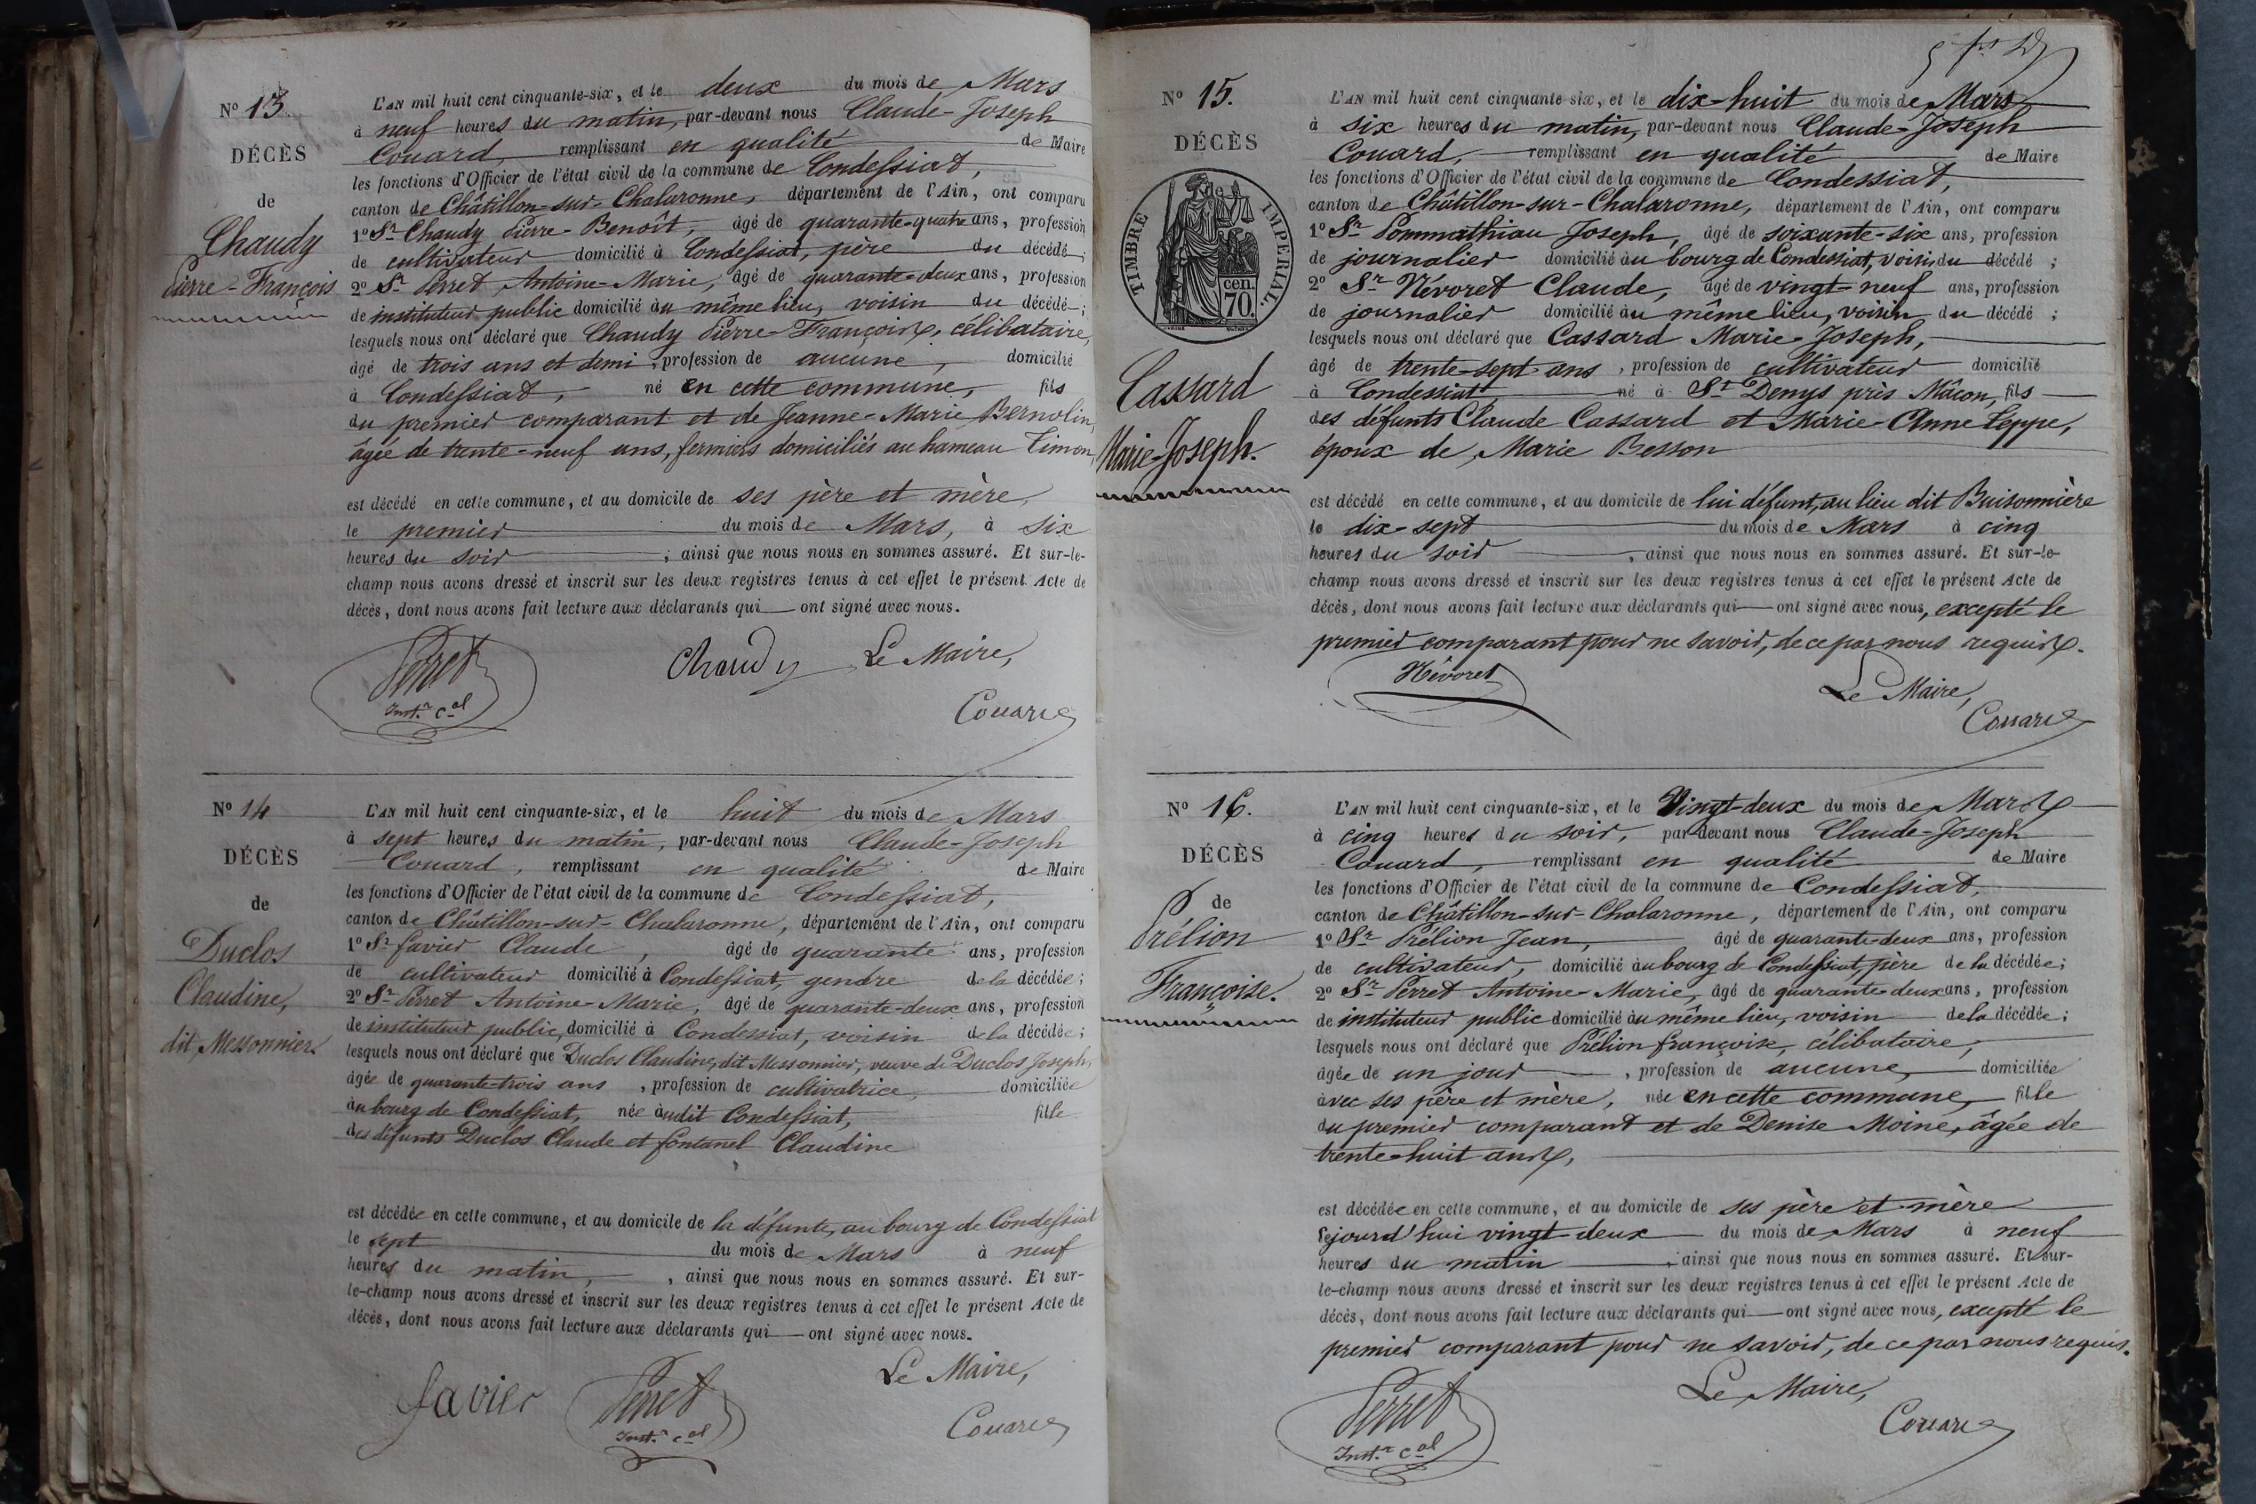 Nº 13.
DÉCÈS
de
Chaudy
Pierre-François
L'AN mil huit cent cinquante-six, et le deux du mois de Mars
à neuf heures du matin, par-devant nous Claude-Joseph
Couard, remplissant en qualité de Maire
les fonctions d'Officier de l'état civil de la commune de Condessiat,
canton de Châtillon-sur-Chalaronne, département de l'Ain, ont comparu
1º Sr Chaudy Pierre-Benoît, âgé de quarante-quatre ans, profession
de cultivateur domicilié à Condessiat, père du décédé;
2º Sr Perret Antoine-Marie, âgé de quarante-deux ans, profession
de instituteur public domicilié au même lieu, voisin du décédé;
lesquels nous ont déclaré que Chaudy Pierre-François, célibataire,
âgé de trois ans et demi, profession de aucune, domicilié
à Condessiat, né en cette commune, fils
du premier comparant et de Jeanne-Marie Bernolin,
âgée de trente-neuf ans, fermiers domiciliés au hameau Timon,
est décédé en cette commune, et au domicile de ses père et mère,
le premier du mois de Mars, à six
heures du soir ; ainsi que nous nous en sommes assuré. Et sur-le-
champ nous avons dressé et inscrit sur les deux registres tenus à cet effet le présent Acte de
décès, dont nous avons fait lecture aux déclarants qui ont signé avec nous.
Perret
Inst.r c.al
Chaudy
Le Maire,
Couard
Nº 14
DÉCÈS
de
Duclos
Claudine,
dit Messonnier.
L'AN mil huit cent cinquante-six, et le huit du mois de Mars
à sept heures du matin, par-devant nous Claude-Joseph
Couard, remplissant en qualité de Maire
les fonctions d'Officier de l'état civil de la commune de Condessiat,
canton de Châtillon-sur-Chalaronne, département de l'Ain, ont comparu
1º Sr Favier Claude, âgé de quarante ans, profession
de cultivateur domicilié à Condessiat, gendre de la décédée;
2º Sr Perret Antoine-Marie, âgé de quarante-deux ans, profession
de instituteur public, domicilié à Condessiat, voisin de la décédée;
lesquels nous ont déclaré que Duclos Claudine, dit Messonnier, veuve de Duclos Joseph,
âgée de quarante-trois ans, profession de cultivatrice, domiciliée
au bourg de Condessiat, née audit Condessiat, fille
des défunts Duclos Claude et Fontanel Claudine
est décédée en cette commune, et au domicile de la défunte, au bourg de Condessiat
le sept du mois de Mars à neuf
heures du matin, , ainsi que nous nous en sommes assuré. Et sur-
le-champ nous avons dressé et inscrit sur les deux registres tenus à cet effet le présent Acte de
décès, dont nous avons fait lecture aux déclarants qui ont signé avec nous.
favier
Perret
Inst.r c.al
Le Maire,
Couard
Nº 15.
DÉCÈS
de
TIMBRE IMPERIAL.
cen.
70.
Cassard
Marie-Joseph.
L'AN mil huit cent cinquante-six, et le dix-huit du mois de Mars,
à six heures du matin, par-devant nous Claude-Joseph
Couard, remplissant en qualité de Maire
les fonctions d'Officier de l'état civil de la commune de Condessiat,
canton de Châtillon-sur-Chalaronne, département de l'Ain, ont comparu
1º Sr Pommathiau Joseph, âgé de soixante-six ans, profession
de journalier domicilié au bourg de Condessiat, voisin du décédé;
2º Sr Névoret Claude, âgé de vingt-neuf ans, profession
de journalier domicilié au même lieu, voisin du décédé;
lesquels nous ont déclaré que Cassard Marie-Joseph,
âgé de trente-sept ans, profession de cultivateur domicilié
à Condessiat né à St Denys près Mâcon, fils
des défunts Claude Cassard et Marie-Anne Teppe,
époux de Marie Besson
est décédé en cette commune, et au domicile de lui défunt, au lieu dit Buisonnière
le dix-sept du mois de Mars à cinq
heures du soir , ainsi que nous nous en sommes assuré. Et sur-le-
champ nous avons dressé et inscrit sur les deux registres tenus à cet effet le présent Acte de
décès, dont nous avons fait lecture aux déclarants qui ont signé avec nous, excepté le
premier comparant pour ne savoir, de ce par nous requis.
Névoret
Le Maire,
Couard
Nº 16.
DÉCÈS
de
Prélion
Françoise.
L'AN mil huit cent cinquante-six, et le Vingt-deux du mois de Mars
à cinq heures du soir, par devant nous Claude-Joseph
Couard, remplissant en qualité de Maire
les fonctions d'Officier de l'état civil de la commune de Condessiat,
canton de Châtillon-sur-Chalaronne, département de l'Ain, ont comparu
1º Sr Prélion Jean, âgé de quarante-deux ans, profession
de cultivateur, domicilié au bourg de Condessiat, père de la décédée;
2º Sr Perret Antoine-Marie, âgé de quarante-deux ans, profession
de instituteur public domicilié au même lieu, voisin de la décédée;
lesquels nous ont déclaré que Prélion françoise, célibataire,
âgée de un jour, profession de aucune, domiciliée
avec ses père et mère, née en cette commune, fille
du premier comparant et de Denise Moine, âgée de
trente-huit ans,
est décédée en cette commune, et au domicile de ses père et mère
cejourd'hui vingt-deux du mois de Mars à neuf
heures du matin ; ainsi que nous nous en sommes assuré. Et sur-
le-champ nous avons dressé et inscrit sur les deux registres tenus à cet effet le présent Acte de
décès, dont nous avons fait lecture aux déclarants qui ont signé avec nous, excepté le
premier comparant pour ne savoir, de ce par nous requis.
Perret
Inst.r c.al
Le Maire,
Couard